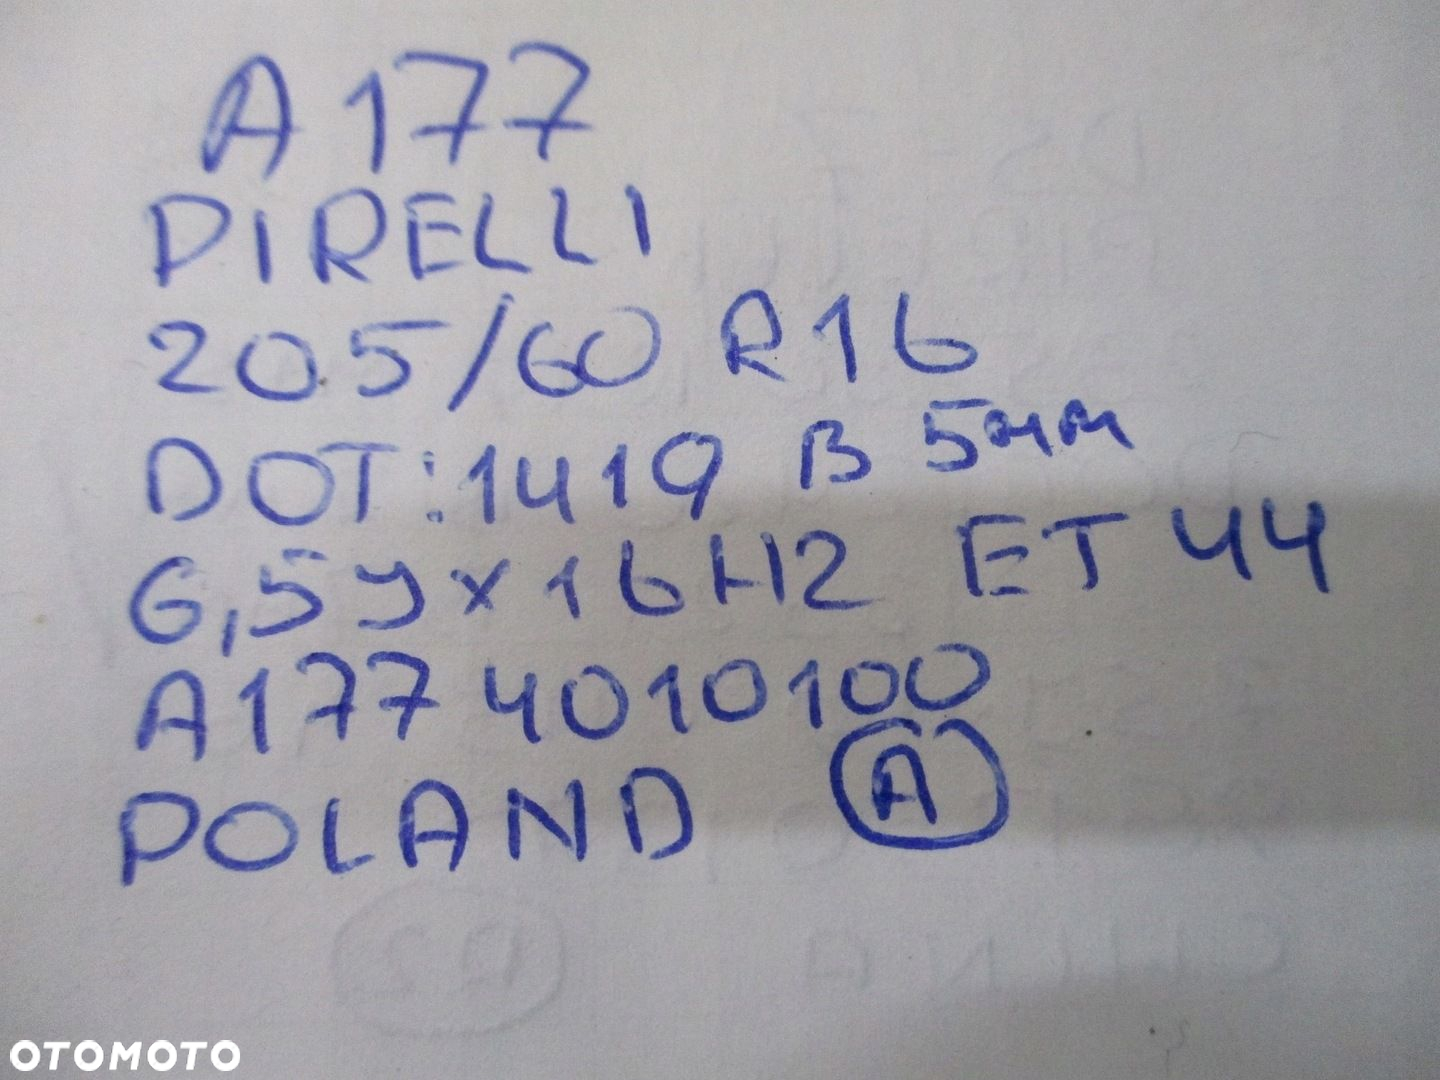 A 177
PIRELLI
205/60 R16
DOT:1419 B 5mm
6,5J x 16H2 ET 44
A177 4010100
POLAND A
OTOMOTO